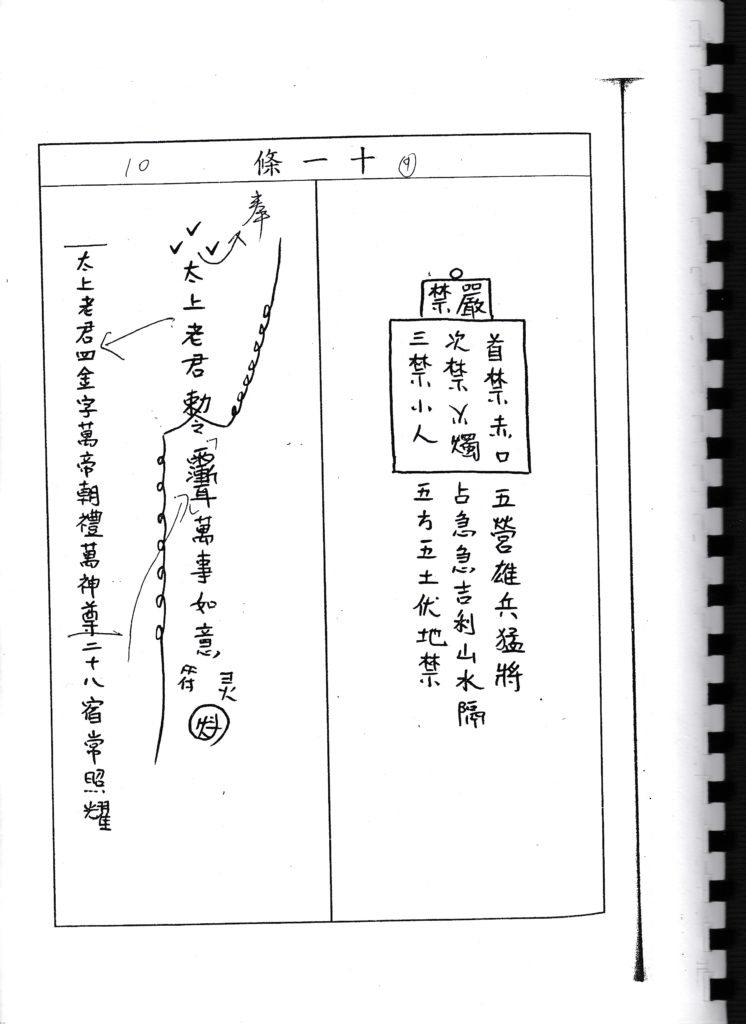 十一條
9
10
嚴禁
首禁赤口
次禁火燭
三禁小人
五營雄兵猛將
占急急吉利山水隔
五方五土伏地禁
奉
太上老君勅令
萬事如意
灵符
太上老君四金字萬帝朝禮萬神尊二十八宿常照耀